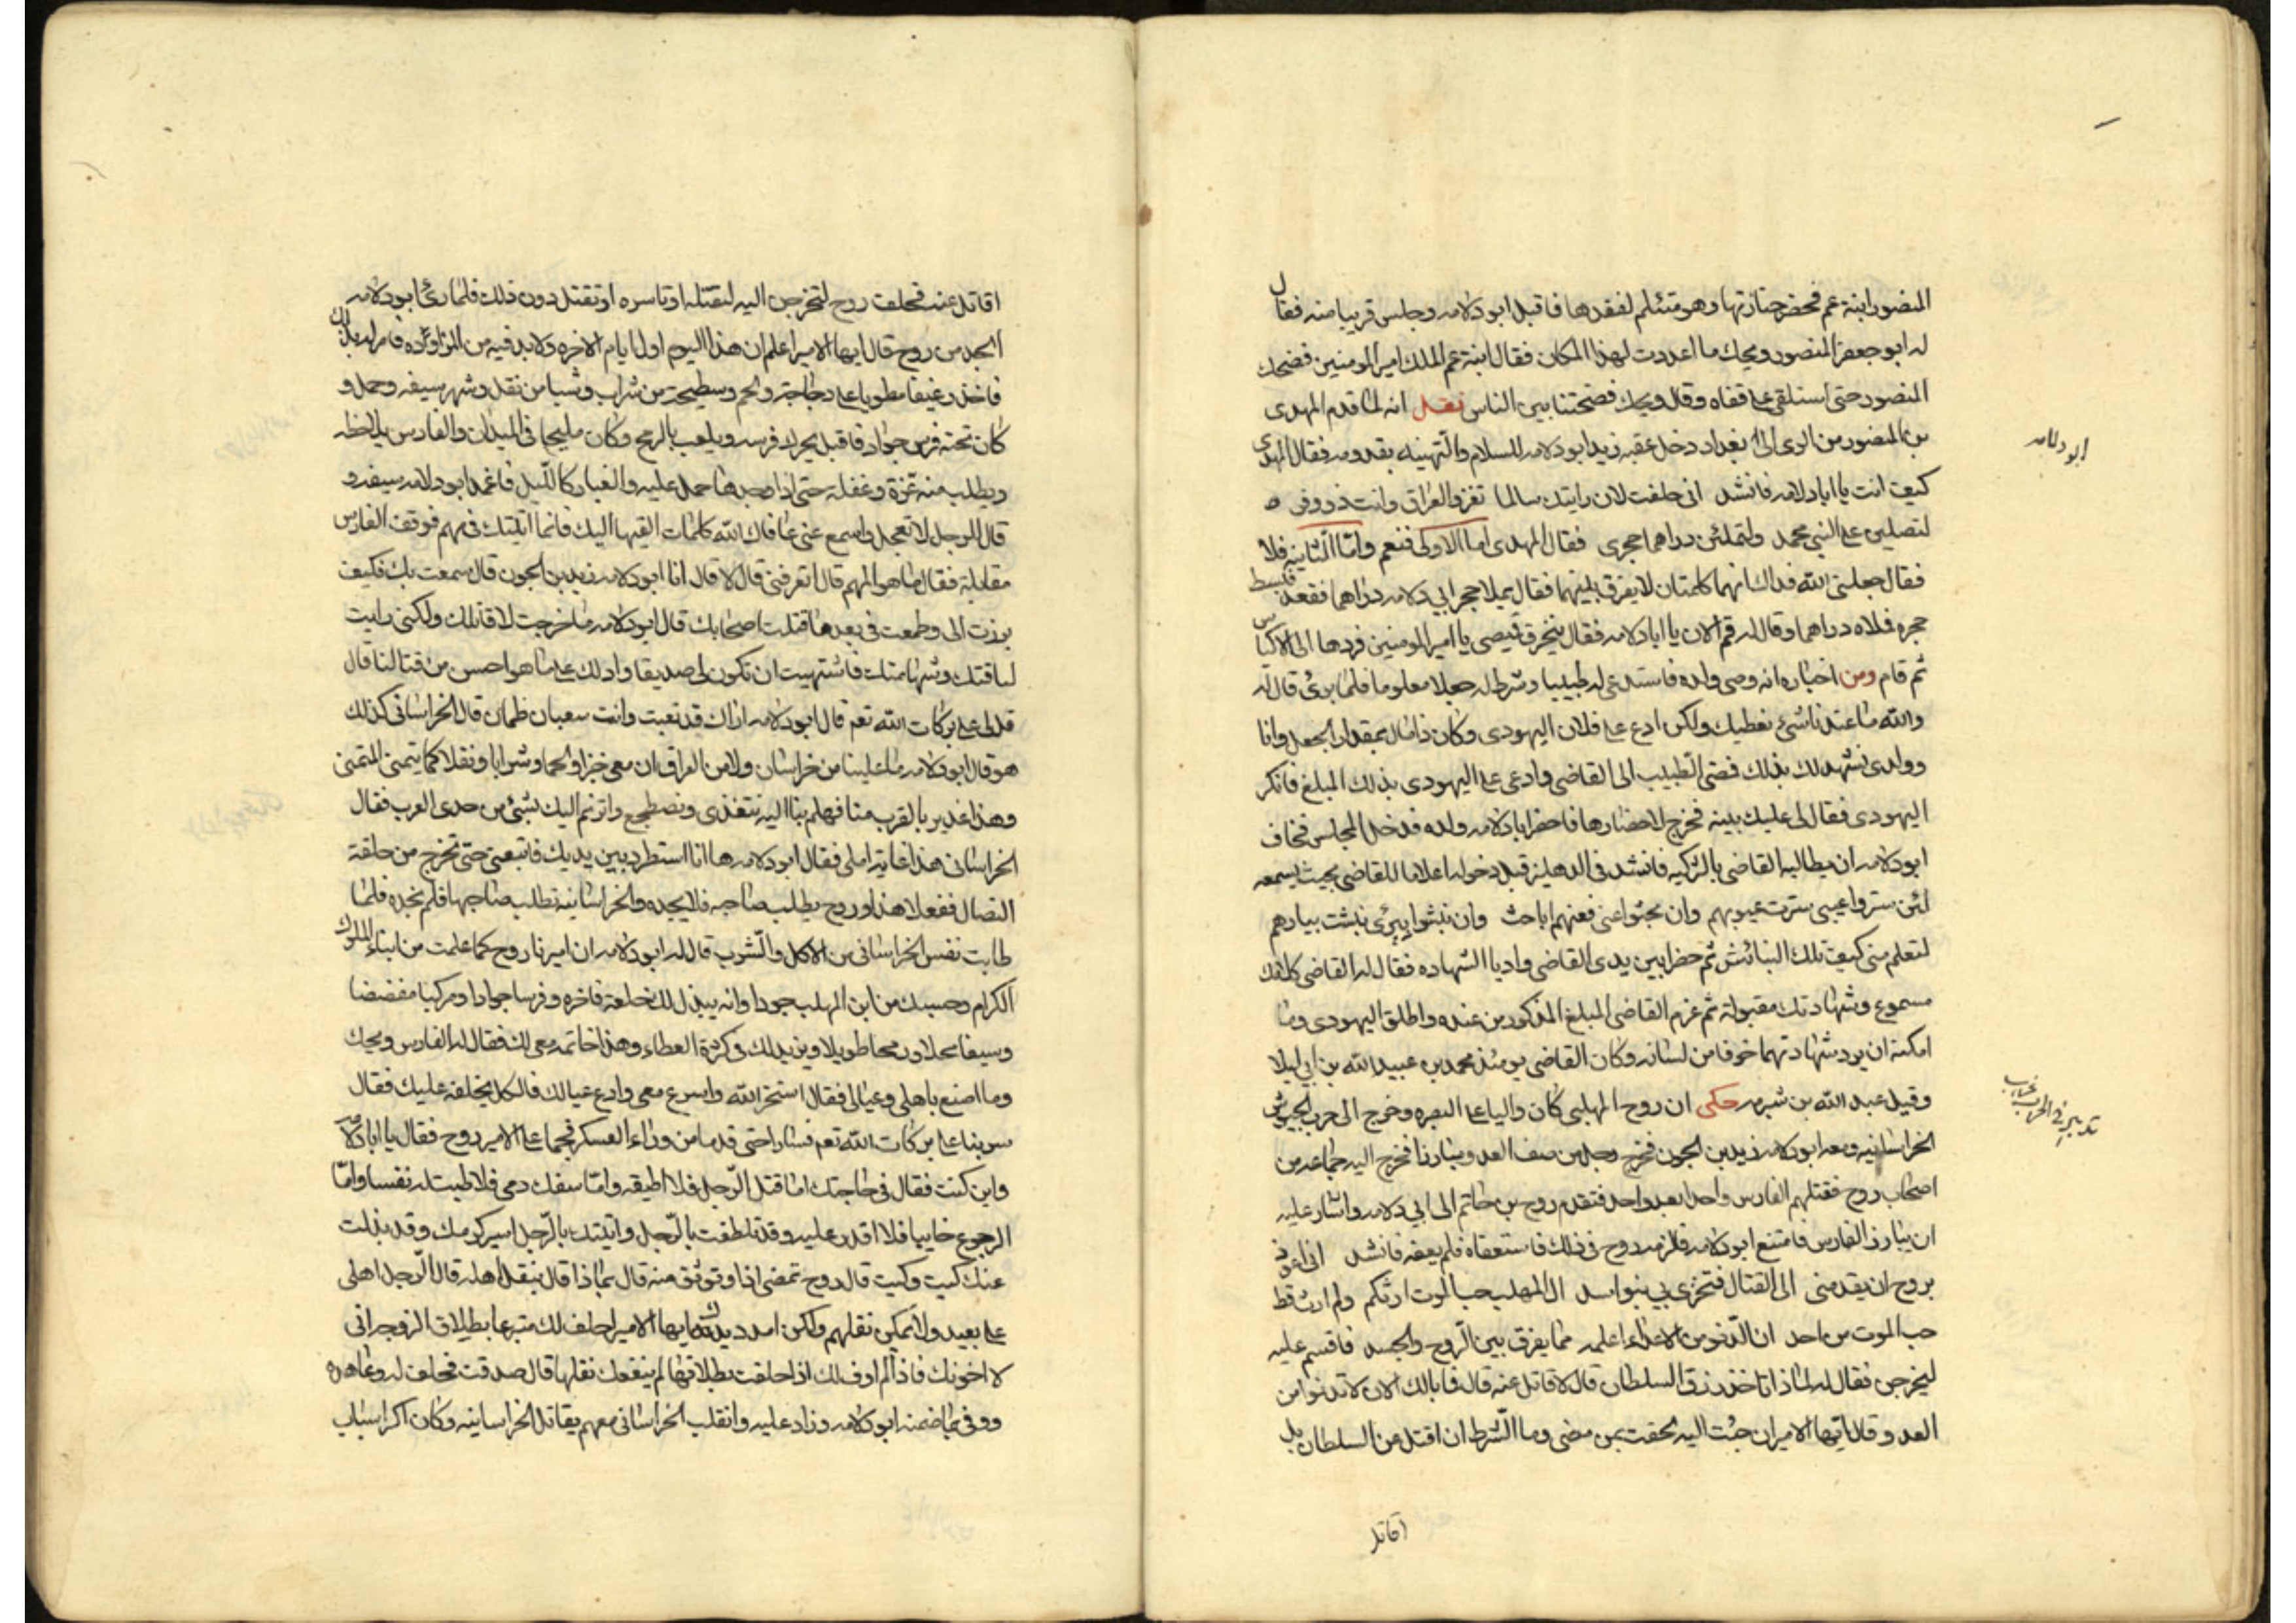 المنصور ابنة عم فحضر جنازتها وهو متئلم لفقدها فاقبل ابو دلامه وجلس قريبا منه فقال
له ابو جعفر المنصور ويحك ما اعددت لهذا المكان فقال ابنة عم الملك امير المومنين فضحك
المنصور حتى استلقى على قفاه وقال ويحك فضحتنا بين الناس نقل انه لما قدم المهدى
بن المنصور من الرى الى بغداد دخل عقبه زيد ابو دلامه للسلام والتهنيه بقدومه فقال المهدى
ابو دلامه
كيف انت يا ابا دلامه فانشد انى حلفت لان رايتك سالما تغزو العراق وانت ذو وفر
لتصلين على النبي محمد ولتملئن دراهما حجرى فقال المهدى اما الاولى فنعم واما الثانيه فلا
فقال جعلنى الله فداك انهما كلمتان لا يفرق بينهما فقال يملا حجر ابي دلامه دراهما فقعد فبسط
حجره فملاه دراهما وقال له قم الان يا ابا دلامه فقال ينخرق قميصى يا امير المومنين فردها الى الاكياس
ثم قام ومن اخباره انه وصى ولده فاستدعى له طبيبا وشرط له جعلا معلوما فلما برئ قال له
والله ما عندنا شئ نعطيك ولكن ادع على فلان اليهودى وكان ذا مال بمقدار الجعل وانا
وولدى نشهد لك بذلك فمضى الطبيب الى القاضى وادعى على اليهودى بذلك المبلغ فانكر
اليهودى فقال لى عليك بينه فخرج لاحضارها فاحضر ابا دلامه وولده فدخل المجلس فخاف
ابو دلامه ان يطالبه القاضى بالتزكيه فانشد فى الدهليز قبل دخوله اعلاما للقاضى بحيث يسمعه
لئن ستروا عيبى سترت عيوبهم وان بحثوا عنى فعنهم اباحث وان نبثوا بيرى نبثت بيارهم
لتعلم منى كيف تلك النبائش ثم حضرا بين يدى القاضى واديا الشهاده فقال له القاضى كلامك
مسموع وشهادتك مقبولة ثم غرم القاضى المبلغ المذكور من عنده واطلق اليهودى وما
امكنه ان يرد شهادتهما خوفا من لسانه وكان القاضى يومئذ محمد بن عبيد الله بن ابي ليلا
وقيل عبد الله بن شبرمه حكى ان روح المهلبى كان واليا على البصره وخرج الى حرب الجيوش
تدبير فى الحرب
الخراسانيه ومعه ابو دلامه زيد بن الجون فخرج رجل من صف العدو مبارزا فخرج اليه جماعه من
اصحاب روح فقتلهم الفارس واحدا بعد واحد فتقدم روح بن حاتم الى ابي دلامه واشار عليه
ان يبارز الفارس فامتنع ابو دلامه فلزمه روح فى ذلك فاستعفاه فلم يعفه فانشد انى اعوذ
بروح ان يقدمنى الى القتال فتخزى بي بنو اسد ال المهلب حب الموت ارثكم ولم ارث قط
حب الموت من احد ان الدنو من الاعداء اعلمه مما يفرق بين الروح والجسد فاقسم عليه
ليخرجن فقال له لماذا تاخذ رزق السلطان قال لاقاتل عنه قال فما بالك الان لا تدنوا من
العدو قال ايها الامير ان جئت اليه لحقت بمن مضى وما الشرط ان اقتل عن السلطان بل
اقاتل
اقاتل عنه فحلف روح لتخرجن اليه لتقتله او تاسره او تقتل دون ذلك فلما رئ ابو دلامه
الجد من روح قال ايها الامير اعلم ان هذا اليوم اول ايام الاخره ولا بد فيه من الزواده فامر له بذلك
فاخذ رغيفا مطويا على دجاجة ولحم وسطيحة من شراب وشيا من نقل وشهر سيفه وحمل و
كان تحته فرس جواد فاقبل يجر له فرسه ويلعب بالرمح وكان مليحا فى الميدان والفارس يلاحظه
ويطلب منه غرة وغفلة حتى اذا وجدها حمل عليه والغبار كالليل فاغمد ابو دلامه سيفه و
قال للرجل لا تعجل واسمع عنى عافاك الله كلمات القيها اليك فانما اتيتك فى مهم فوقف الفارس
مقابله فقال ما هو المهم قال اتعرفنى قال لا قال انا ابو دلامه زيد بن الجون قال سمعت بك فكيف
برزت الى وطمعت فى بعدها قتلت اصحابك قال ابو دلامه ما خرجت لاقاتلك ولكنى رايت
لباقتك وشهامتك فاشتهيت ان تكون لى صديقا وادلك على ما هو احسن من قتالنا قال
قل لى على بركات الله تعم قال ابو دلامه اراك قد تعبت وانت سعبان ظمان قال الخراسانى كذلك
هو قال ابو دلامه ما علينا من خراسان ولا من العراق ان معى خبزا ولحما وشرابا ونقلا كما يتمنى المتمنى
وهذا غدير بالقرب منا فهلم بنا اليه نتغذى ونصطجع واترنم اليك بشئ من حدى العرب فقال
الخراسانى هذا غاية املى فقال ابو دلامه ها انا استطرد بين يديك فاتبعنى حتى تخرج من حلقة
النصال ففعلا هذا وروح يطلب صاحبه فلا يجده والخراسانيه تطلب صاحبها فلم تجده فلما
طابت نفس الخراسانى من الاكل والشرب قال له ابو دلامه ان اميرنا روح كما علمت من ابناء الملوك
الكرام وحسبك من ابن المهلب جودا وانه يبذل لك خلعة فاخره وفرسا جوادا ومركبا مفضضا
وسيفا محلا ورمحا طويلا ويزيد لك فى كثرة العطاء وهذا خاتمه معى لك فقال له الفارس ويحك
وما اصنع باهلى وعيالى فقال استخر الله واسرع معى وادع عيالك فالكل يخلفه عليك فقال
سر بنا على بركات الله تعم فسارا حتى قدما من وراء العسكر فهجما على الامير روح فقال يا ابا دلامه
واين كنت فقال فى حاجتك اما قتل الرجل فلا اطيقه واما سفك دمى فلا طبت له نفسا واما
الرجوع خايبا فلا اقدر عليه وقد تلطفت بالرجل واتيتك بالرجل اسير كرمك وقد بذلت
عنك كيت وكيت قال روح تمضى اذا وتوثق منه قال بماذا قال بنقل اهله قال الرجل اهلى
على بعيد ولا يمكن نقلهم ولكن امدد يدك ايها الامير احلف لك متبرعا بطلاق الزوجه انى
لا اخونك فاذا لم اوف لك اذا حلفت بطلاقها لم ينفعك نقلها قال صدقت فحلف له وعاهده
ووفى بما ضمنه ابو دلامه وزاد عليه وانقلب الخراسانى معهم يقاتل الخراسانيه وكان اكبر اسباب